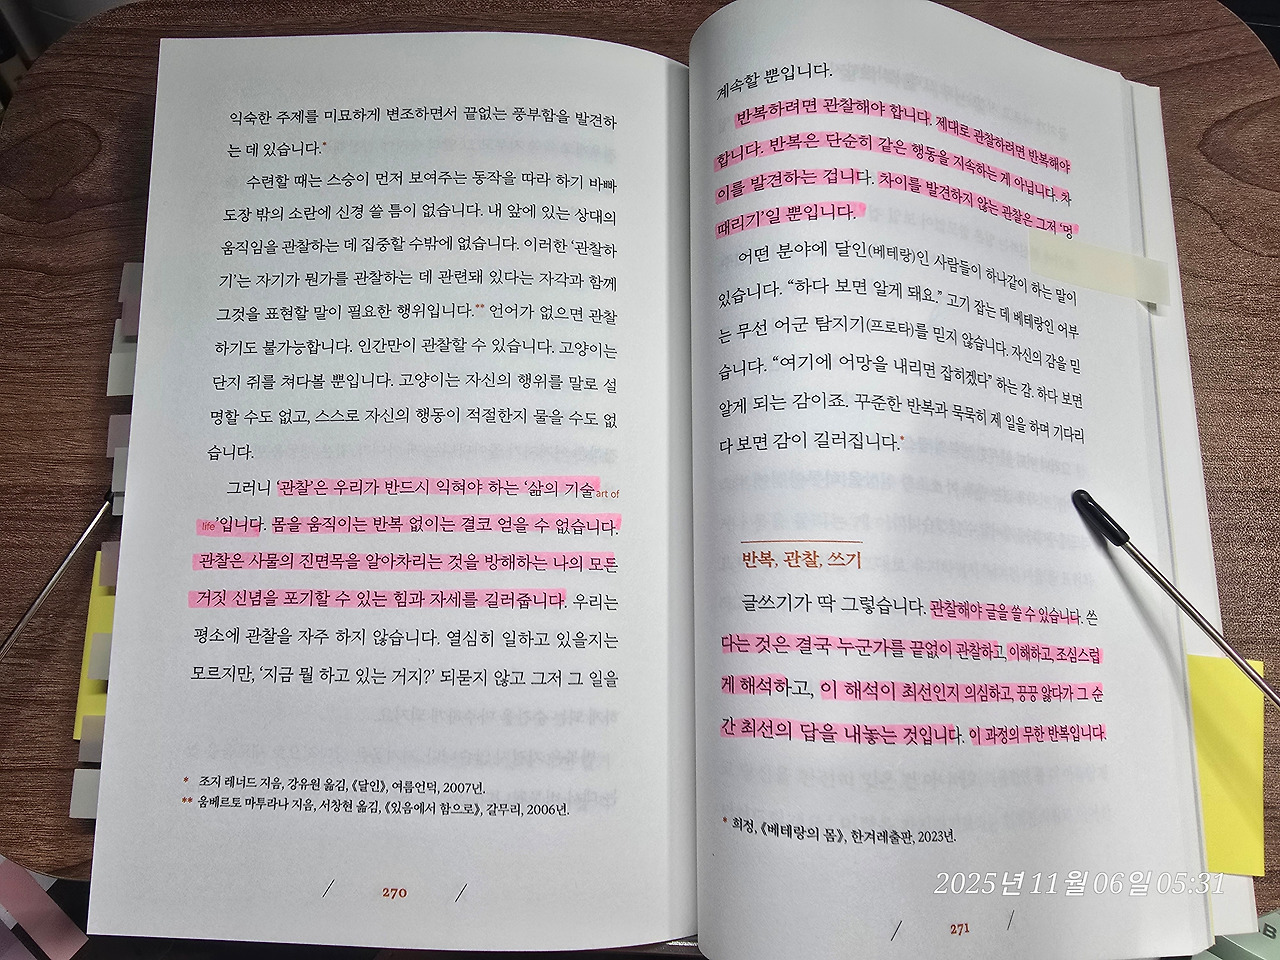 익숙한 주제를 미묘하게 변조하면서 끝없는 풍부함을 발견하
는 데 있습니다.*
수련할 때는 스승이 먼저 보여주는 동작을 따라 하기 바빠
도장 밖의 소란에 신경 쓸 틈이 없습니다. 내 앞에 있는 상대의
움직임을 관찰하는 데 집중할 수밖에 없습니다. 이러한 '관찰하
기'는 자기가 뭔가를 관찰하는 데 관련돼 있다는 자각과 함께
그것을 표현할 말이 필요한 행위입니다.** 언어가 없으면 관찰
하기도 불가능합니다. 인간만이 관찰할 수 있습니다. 고양이는
단지 쥐를 쳐다볼 뿐입니다. 고양이는 자신의 행위를 말로 설
명할 수도 없고, 스스로 자신의 행동이 적절한지 물을 수도 없
습니다.
그러니 '관찰'은 우리가 반드시 익혀야 하는 '삶의 기술art of
life'입니다. 몸을 움직이는 반복 없이는 결코 얻을 수 없습니다.
관찰은 사물의 진면목을 알아차리는 것을 방해하는 나의 모든
거짓 신념을 포기할 수 있는 힘과 자세를 길러줍니다. 우리는
평소에 관찰을 자주 하지 않습니다. 열심히 일하고 있을지는
모르지만, '지금 뭘 하고 있는 거지?' 되묻지 않고 그저 그 일을
* 조지 레너드 지음, 강유원 옮김, 《달인》, 여름언덕, 2007년.
** 움베르토 마투라나 지음, 서창현 옮김, 《있음에서 함으로》, 갈무리, 2006년.
270
계속할 뿐입니다.
반복하려면 관찰해야 합니다. 제대로 관찰하려면 반복해야
합니다. 반복은 단순히 같은 행동을 지속하는 게 아닙니다. 차
이를 발견하는 겁니다. 차이를 발견하지 않는 관찰은 그저 '멍
때리기'일 뿐입니다.
어떤 분야에 달인(베테랑)인 사람들이 하나같이 하는 말이
있습니다. "하다 보면 알게 돼요." 고기 잡는 데 베테랑인 어부
는 무선 어군 탐지기(프로타)를 믿지 않습니다. 자신의 감을 믿
습니다. "여기에 어망을 내리면 잡히겠다" 하는 감. 하다 보면
알게 되는 감이죠. 꾸준한 반복과 묵묵히 제 일을 하며 기다리
다 보면 감이 길러집니다.*
반복, 관찰, 쓰기
글쓰기가 딱 그렇습니다. 관찰해야 글을 쓸 수 있습니다. 쓴
다는 것은 결국 누군가를 끝없이 관찰하고, 이해하고, 조심스럽
게 해석하고, 이 해석이 최선인지 의심하고, 끙끙 앓다가 그 순
간 최선의 답을 내놓는 것입니다. 이 과정의 무한 반복입니다.
* 희정, 《베테랑의 몸》, 한겨레출판, 2023년.
271
2025년 11월 06일 05:31
B